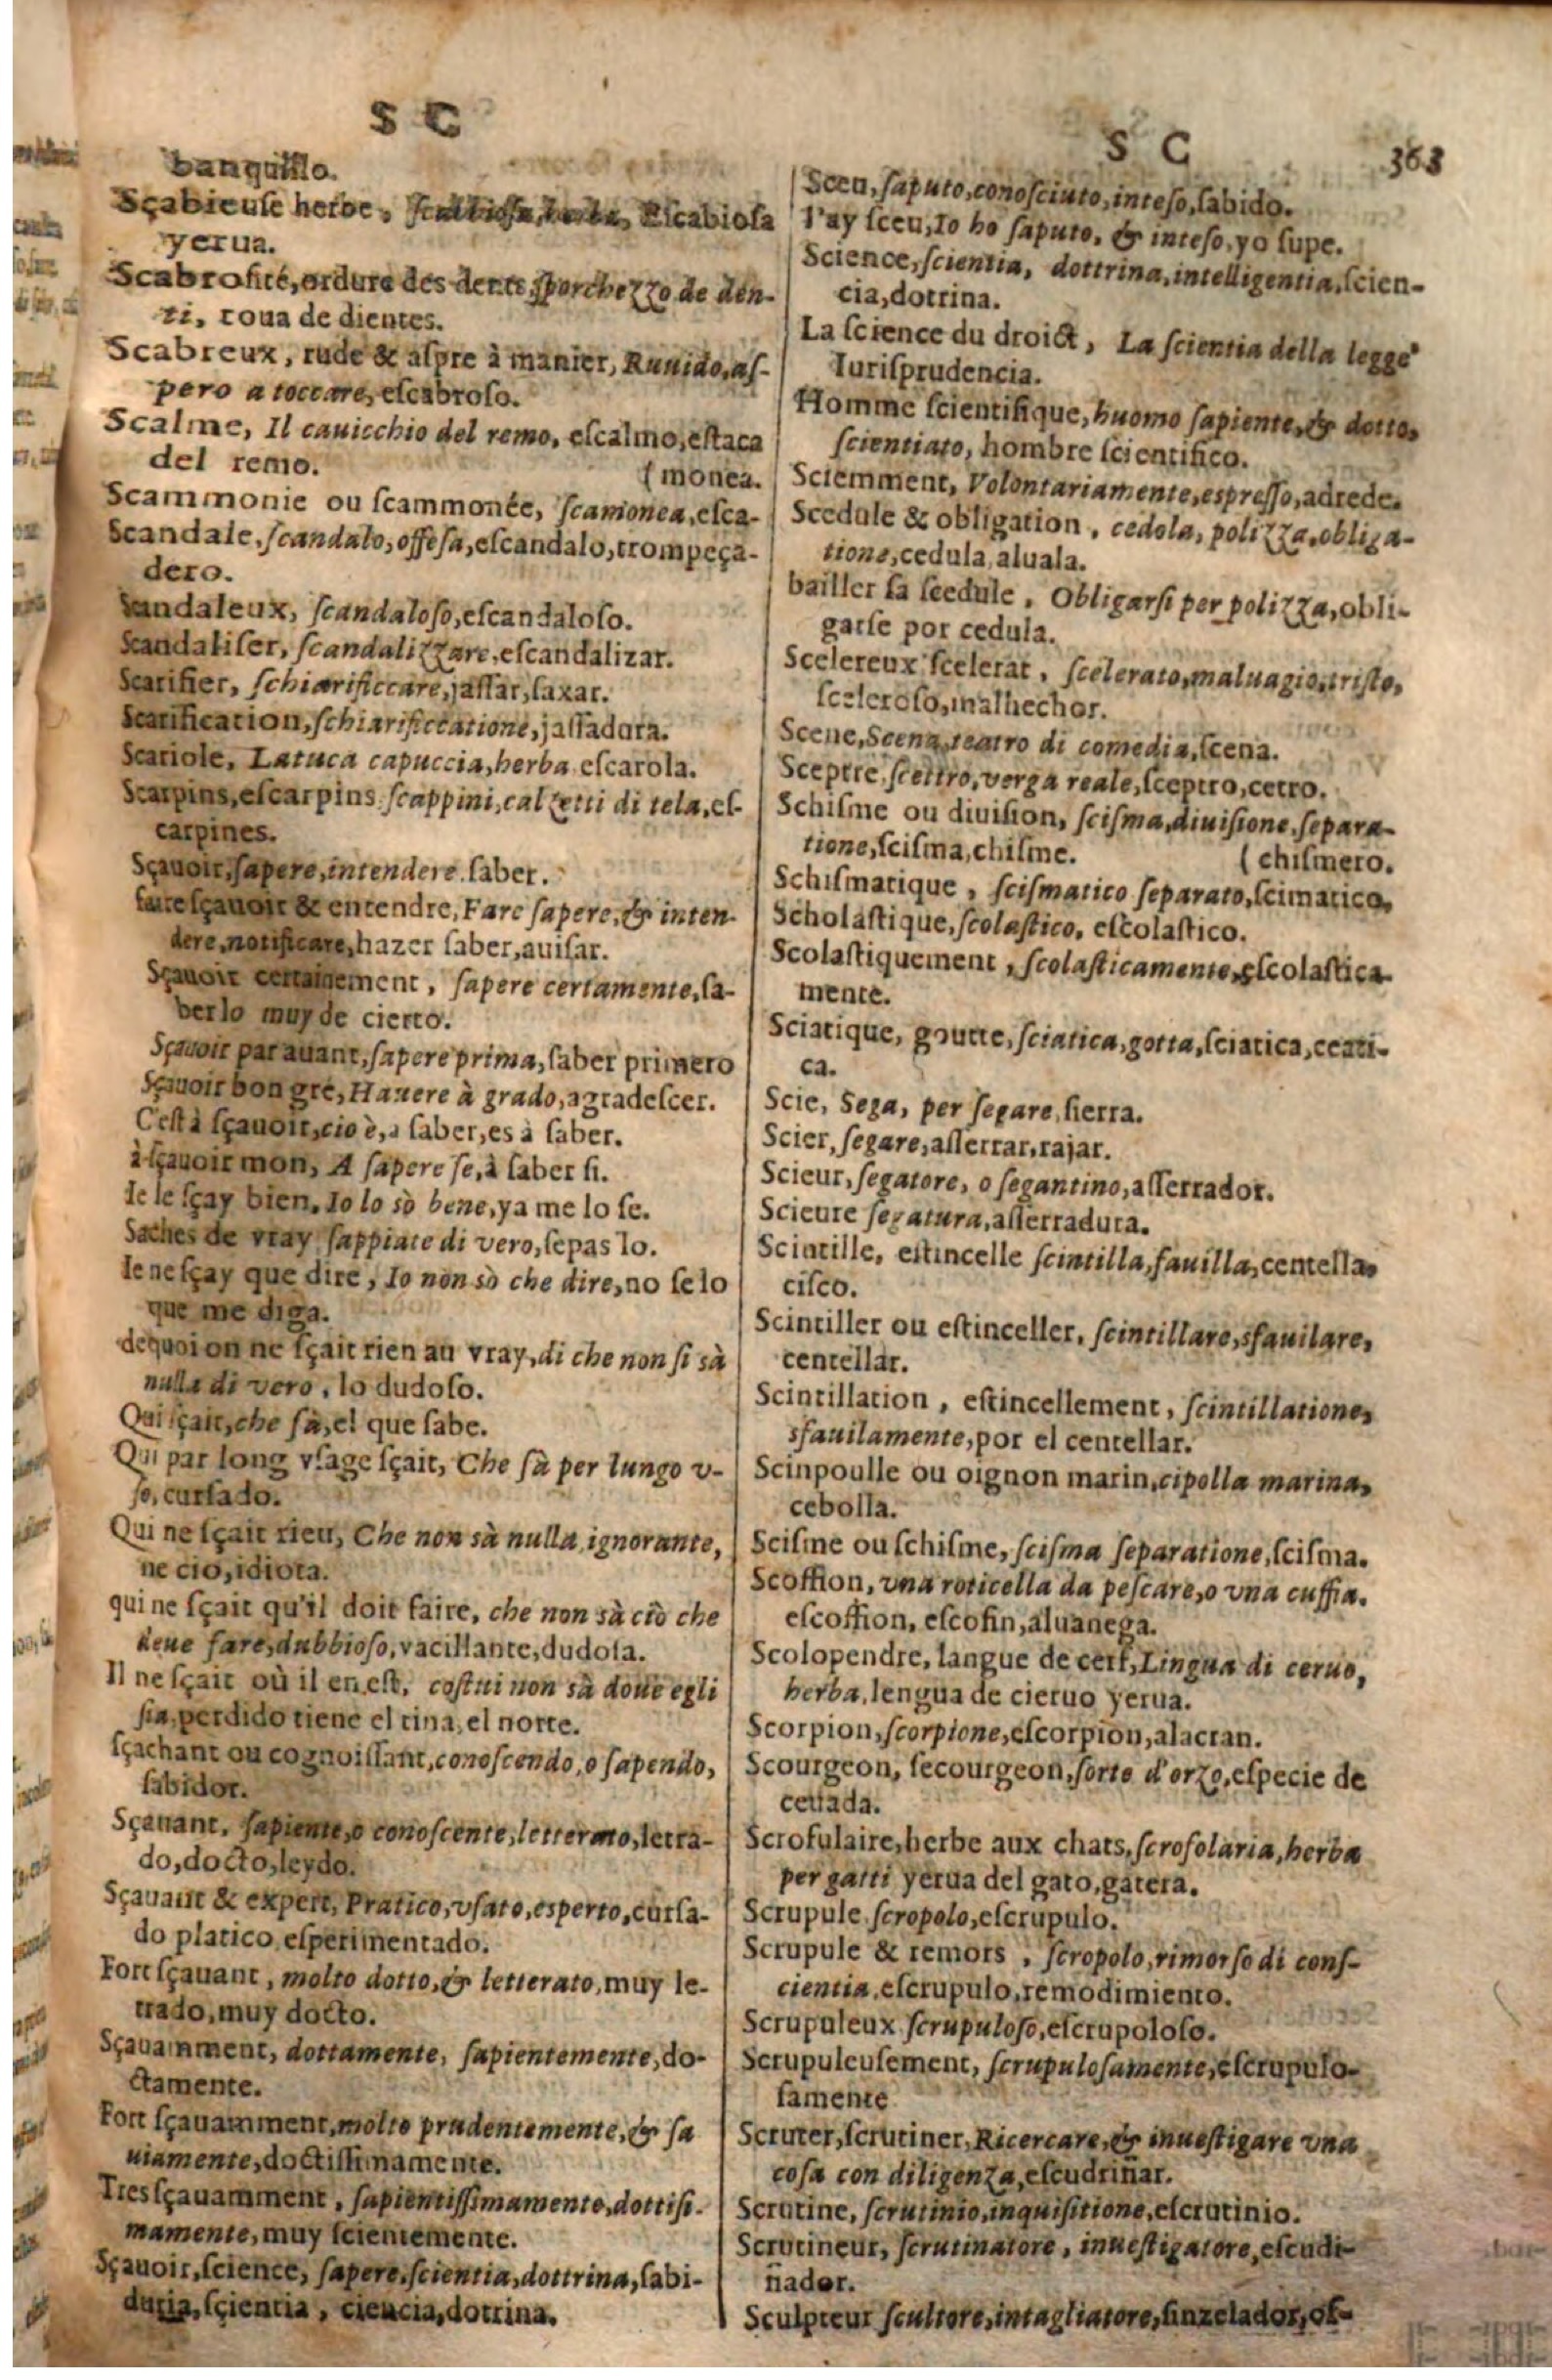 S C
banquillo.
Sçabieuse herbe, scabiosa, herba, Escabiosa
yerua.
Scabrosité, ordure des dents sporchezzo de den-
ti, toua de dientes.
Scabreux, rude & aspre à manier, Ruuido, as-
pero a toccare, escabroso.
Scalme, Il cauicchio del remo, escalmo, estaca
del remo. (monea.
Scammonie ou scammonée, scamonea, esca-
Scandale, scandalo, offesa, escandalo, trompeça-
dero.
Scandaleux, scandaloso, escandaloso.
Scandaliser, scandalizzare, escandalizar.
Scarifier, schiarificcare, jassar, saxar.
Scarification, schiarificcatione, jassadura.
Scariole, Latuca capuccia, herba escarola.
Scarpins, escarpins scappini, calzetti di tela, es-
carpines.
Sçauoir, sapere, intendere saber.
faire sçauoir & entendre, Fare sapere, & inten-
dere, notificare, hazer saber, auisar.
Sçauoir certainement, sapere certamente, sa-
berlo muy de cierto.
Sçauoir par auant, sapere prima, saber primero
Sçauoir bon gré, Hauere à grado, agradescer.
C'est à sçauoir, cio è, a saber, es à saber.
à sçauoir mon, A sapere se, à saber si.
Ie le sçay bien, Io lo sò bene, ya me lo se.
Saches de vray sappiate di vero, sepas lo.
Ie ne sçay que dire, Io non sò che dire, no se lo
que me diga.
dequoi on ne sçait rien au vray, di che non si sà
nulla di vero, lo dudoso.
Qui sçait, che sà, el que sabe.
Qui par long vsage sçait, Che sà per lungo v-
so, cursado.
Qui ne sçait rieu, Che non sà nulla, ignorante,
necio, idiota.
qui ne sçait qu'il doit faire, che non sà ciò che
deue fare, dubbioso, vacillante, dudosa.
Il ne sçait où il en est, costui non sà doue egli
sia, perdido tiene el tina, el norte.
sçachant ou cognoissant, conoscendo, o sapendo,
sabidor.
Sçauant, sapiente, o conoscente, letterato, letra-
do, docto, leydo.
Sçauant & expert, Pratico, vsato, esperto, cursa-
do platico esperimentado.
Fort sçauant, molto dotto, & letterato, muy le-
trado, muy docto.
Sçauamment, dottamente, sapientemente, do-
ctamente.
Fort sçauamment, molto prudentemente, & sa
uiamente, doctissimamente.
Tres sçauamment, sapientissimamente, dottisi-
mamente, muy scientemente.
Sçauoir, science, sapere, scientia, dottrina, sabi-
duria, sçientia, ciencia, dotrina.
S C 363
Sceu, saputo, conosciuto, inteso, sabido.
I'ay sceu, Io ho saputo, & inteso, yo supe.
Science, scientia, dottrina, intelligentia, scien-
cia, dotrina.
La science du droict, La scientia della legge
Iurisprudencia.
Homme scientifique, huomo sapiente, & dotto,
scientiato, hombre scientifico.
Sciemment, Volontariamente, espresso, adrede.
Scedule & obligation, cedola, polizza, obliga-
tione, cedula, aluala.
bailler sa scedule, Obligarsi per polizza, obli-
garse por cedula.
Scelereux scelerat, scelerato, maluagio, tristo,
sceleroso, malhechor.
Scene, Scena, teatro di comedia, scena.
Sceptre scettro, verga reale, sceptro, cetro.
Schisme ou diuision, scisma, diuisione, separa-
tione, scisma, chisme. (chismero.
Schismatique, scismatico separato, scimatico,
Scholastique, scolastico, escolastico.
Scolastiquement, scolasticamente, escolastica-
mente.
Sciatique, goutte, sciatica, gotta, sciatica, ceati-
ca.
Scie, Sega, per segare, sierra.
Scier, segare, asserrar, rajar.
Scieur, segatore, o segantino, asserrador.
Scieure segatura, asserradura.
Scintille, estincelle scintilla, fauilla, centella,
cisco.
Scintiller ou estinceller, scintillare, sfauilare,
centellar.
Scintillation, estincellement, scintillatione,
sfauilamente, por el centellar.
Scinpoulle ou oignon marin, cipolla marina,
cebolla.
Scisme ou schisme, scisma separatione, scisma.
Scoffion, vna roticella da pescare, o vna cuffia.
escoffion, escofin, aluanega.
Scolopendre, langue de cerf, Lingua di ceruo,
herba, lengua de cieruo yerua.
Scorpion, scorpione, escorpion, alacran.
Scourgeon, secourgeon, sorte d'orzo, especie de
ceuada.
Scrofulaire, herbe aux chats, scrofolaria, herba
per gatti yerua del gato, gatera.
Scrupule scropolo, escrupulo.
Scrupule & remors, scropolo, rimorso di cons-
cientia, escrupulo, remodimiento.
Scrupuleux scrupuloso, escrupoloso.
Scrupuleusement, scrupulosamente, escrupulo-
samente
Scruter, scrutiner, Ricercare, & inuestigare vna
cosa con diligenza, escudriñar.
Scrutine, scrutinio, inquisitione, escrutinio.
Scrutineur, scrutinatore, inuestigatore, escudi-
ñador.
Sculpteur scultore, intagliatore, sinzelador, of-